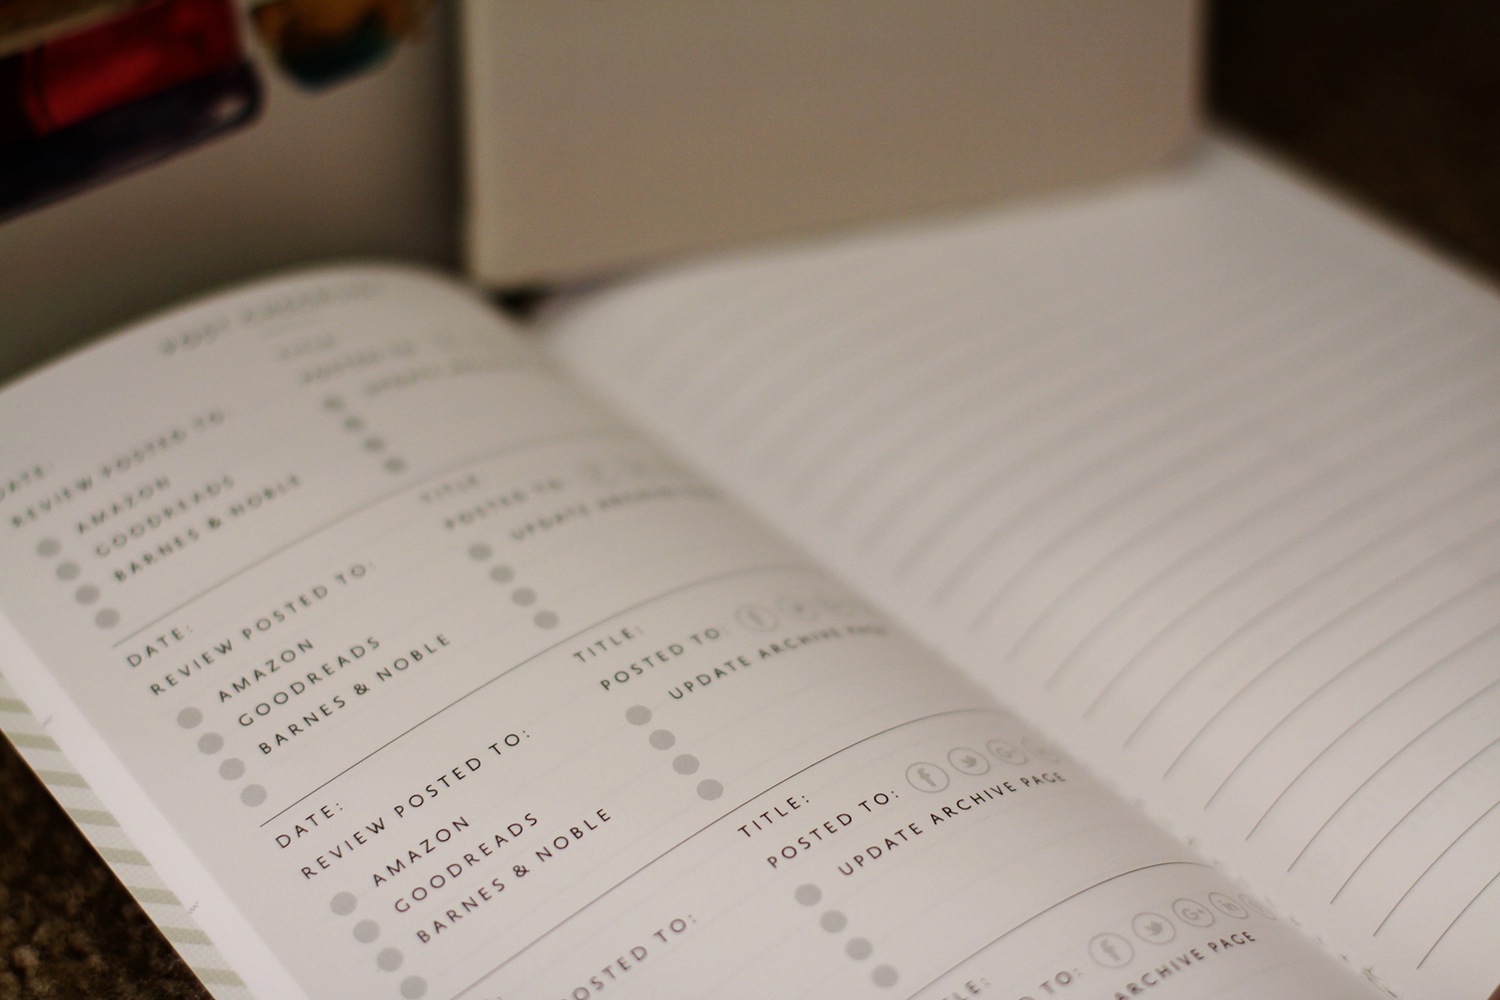 DATE:
REVIEW POSTED TO:
AMAZON
GOODREADS
BARNES & NOBLE
TITLE
POSTED TO
UPDATE
DATE:
REVIEW POSTED TO:
AMAZON
GOODREADS
BARNES & NOBLE
TITLE:
POSTED TO:
UPDATE ARCHIVE PAGE
DATE:
REVIEW POSTED TO:
AMAZON
GOODREADS
BARNES & NOBLE
TITLE:
POSTED TO:
UPDATE ARCHIVE PAGE
POSTED TO:
TO:
ARCHIVE PAGE